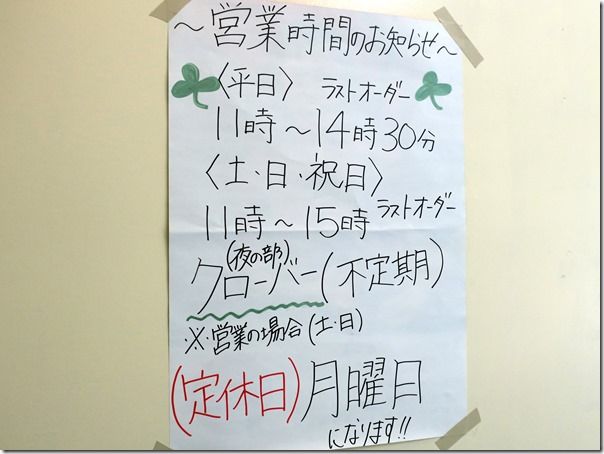 ～営業時間のお知らせ～
〈平日〉 ラストオーダー
11時～14時30分
〈土・日・祝日〉
11時～15時 ラストオーダー
(夜の部)
クローバー(不定期)
※営業の場合(土・日)
(定休日)月曜日
になります!!